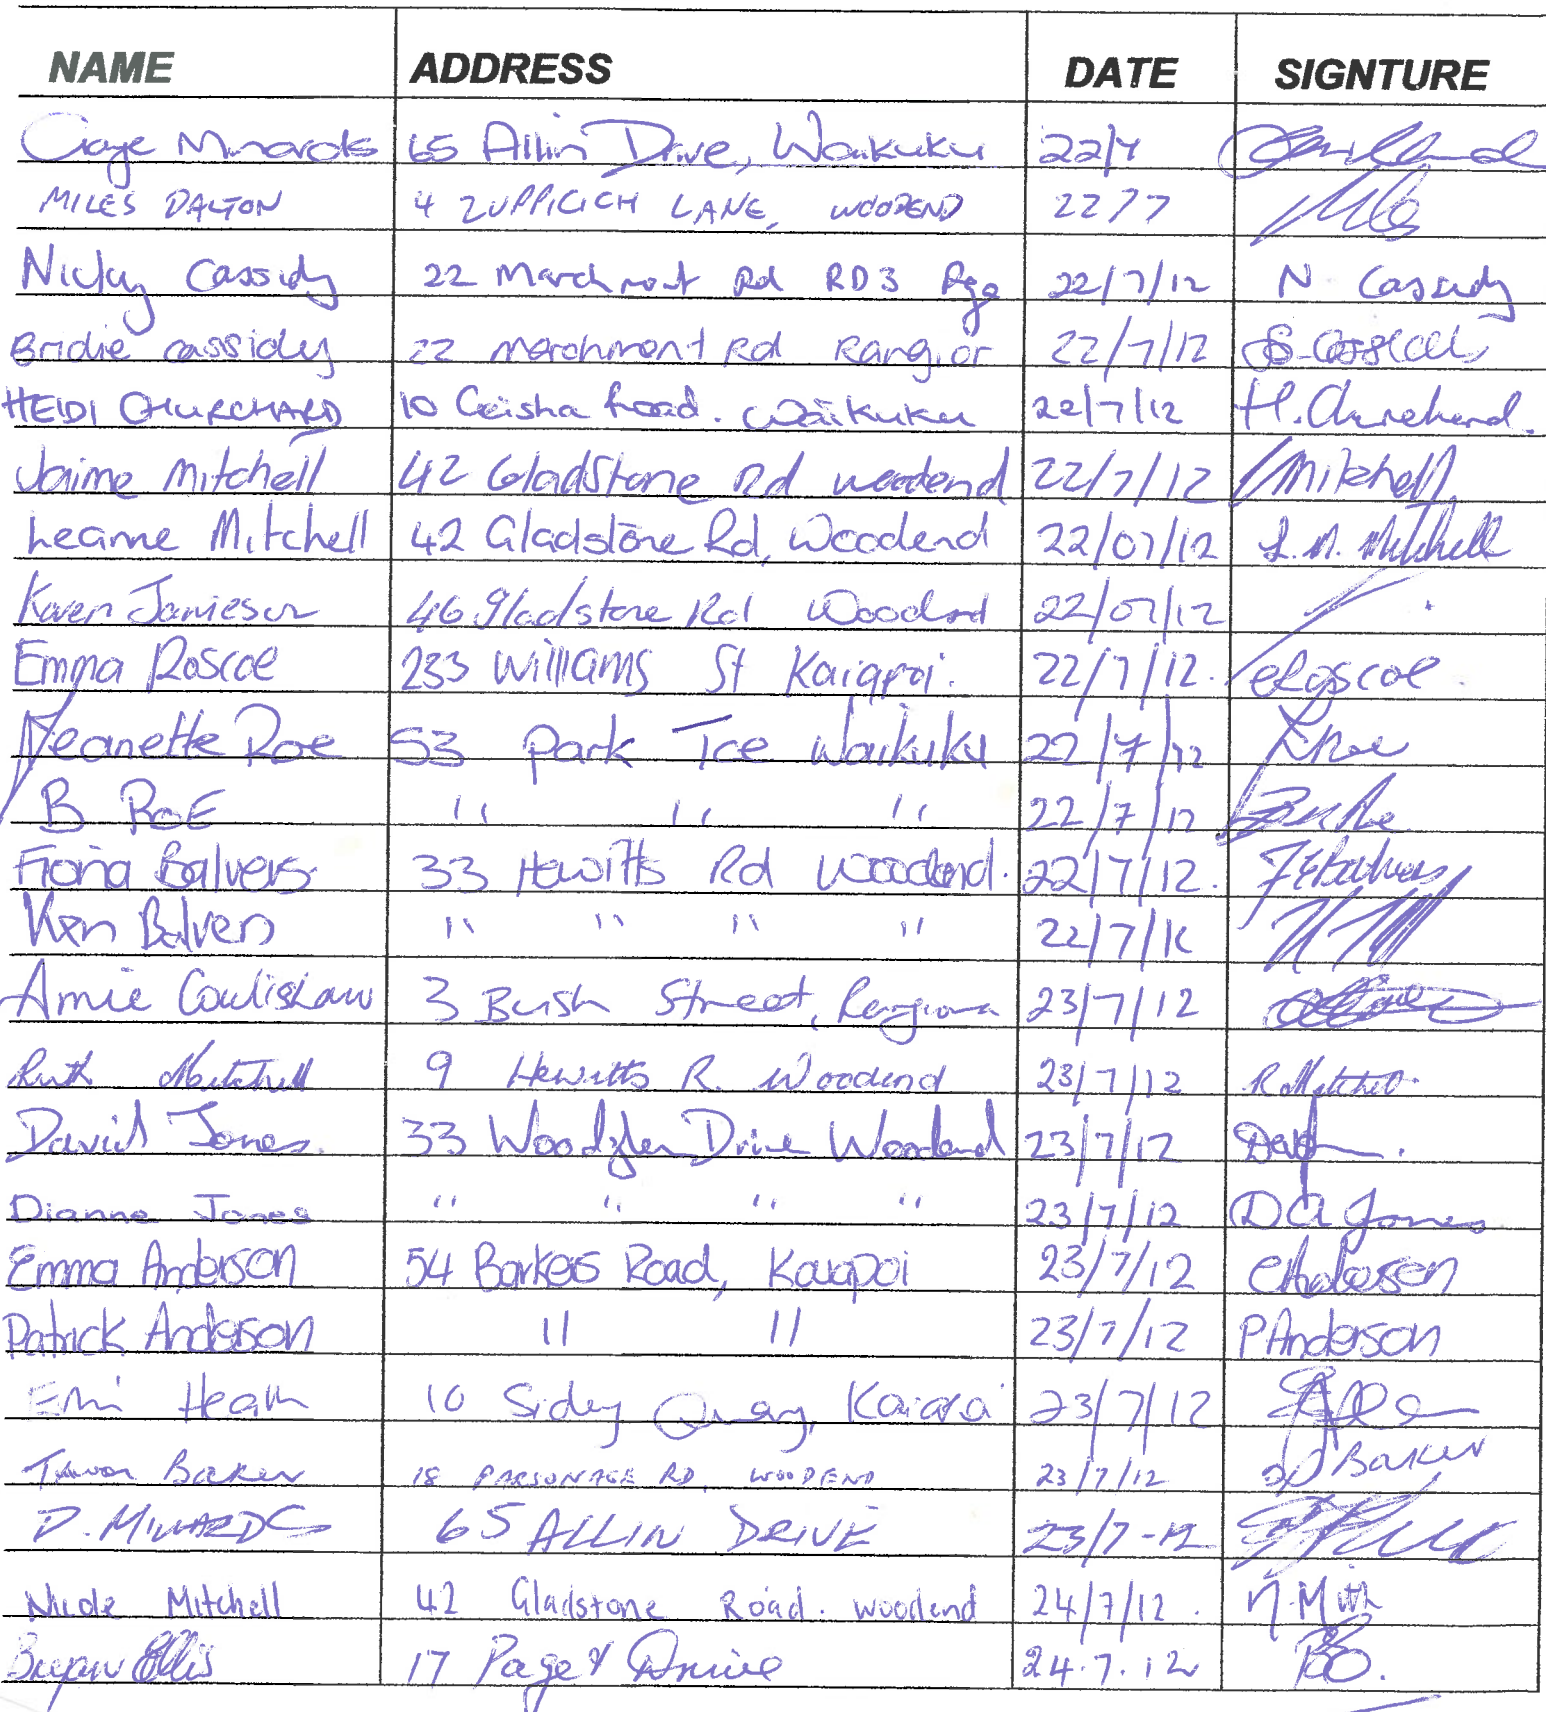 NAME ADDRESS DATE SIGNTURE
65 Allin Drive, Waikuku 22/7
MILES DALTON 4 ZUPPICICH LANE, WOODEND 22 7 7
Nicky Cassidy 22 Marchmont Rd RD3 Rga 22/7/12 N Cassidy
Bridie cassidy 22 marchmont Rd Rangior 22/7/12
HEIDI CHURCHARD 10 Geisha Road. Waikuku 22/7/12 H. Churchard.
Jaime Mitchell 42 Gladstone Rd woodend 22/7/12 Mitchell
Leanne Mitchell 42 Gladstone Rd, Woodend 22/07/12 L. M. Mitchell
Karen Jamieson 46 Gladstone Rd Woodend 22/07/12
Emma Roscoe 233 Williams St Kaiapoi. 22/7/12. eRoscoe.
Jeanette Roe 53 Park Tce Waikuku 22/7/12 Roe
B ROE " " " 22/7/12
Fiona Balvers 33 Hewitts Rd Woodend. 22/7/12.
Ken Balvers " " " " 22/7/12
Amie Coulishaw 3 Bush Street, Rangiora 23/7/12
Ruth Mitchell 9 Hewitts R. Woodend 23/7/12 R Mitchell
David Jones. 33 Woodglen Drive Woodend 23/7/12
Dianne Jones " " " " 23/7/12 D A Jones
Emma Anderson 54 Barkers Road, Kaiapoi 23/7/12
Patrick Anderson " " 23/7/12 PAnderson
Heath 10 Sidey Quay, Kaiapoi 23/7/12
Trevor Baker 18 PARSONAGE RD, WOODEND 23/7/12 Baker
D. MILLARD 65 ALLIN DRIVE 23/7-12
Nicole Mitchell 42 Gladstone Road. Woodend 24/7/12. N.Mitch
Bryan Ellis 17 Paget Drive 24.7.12